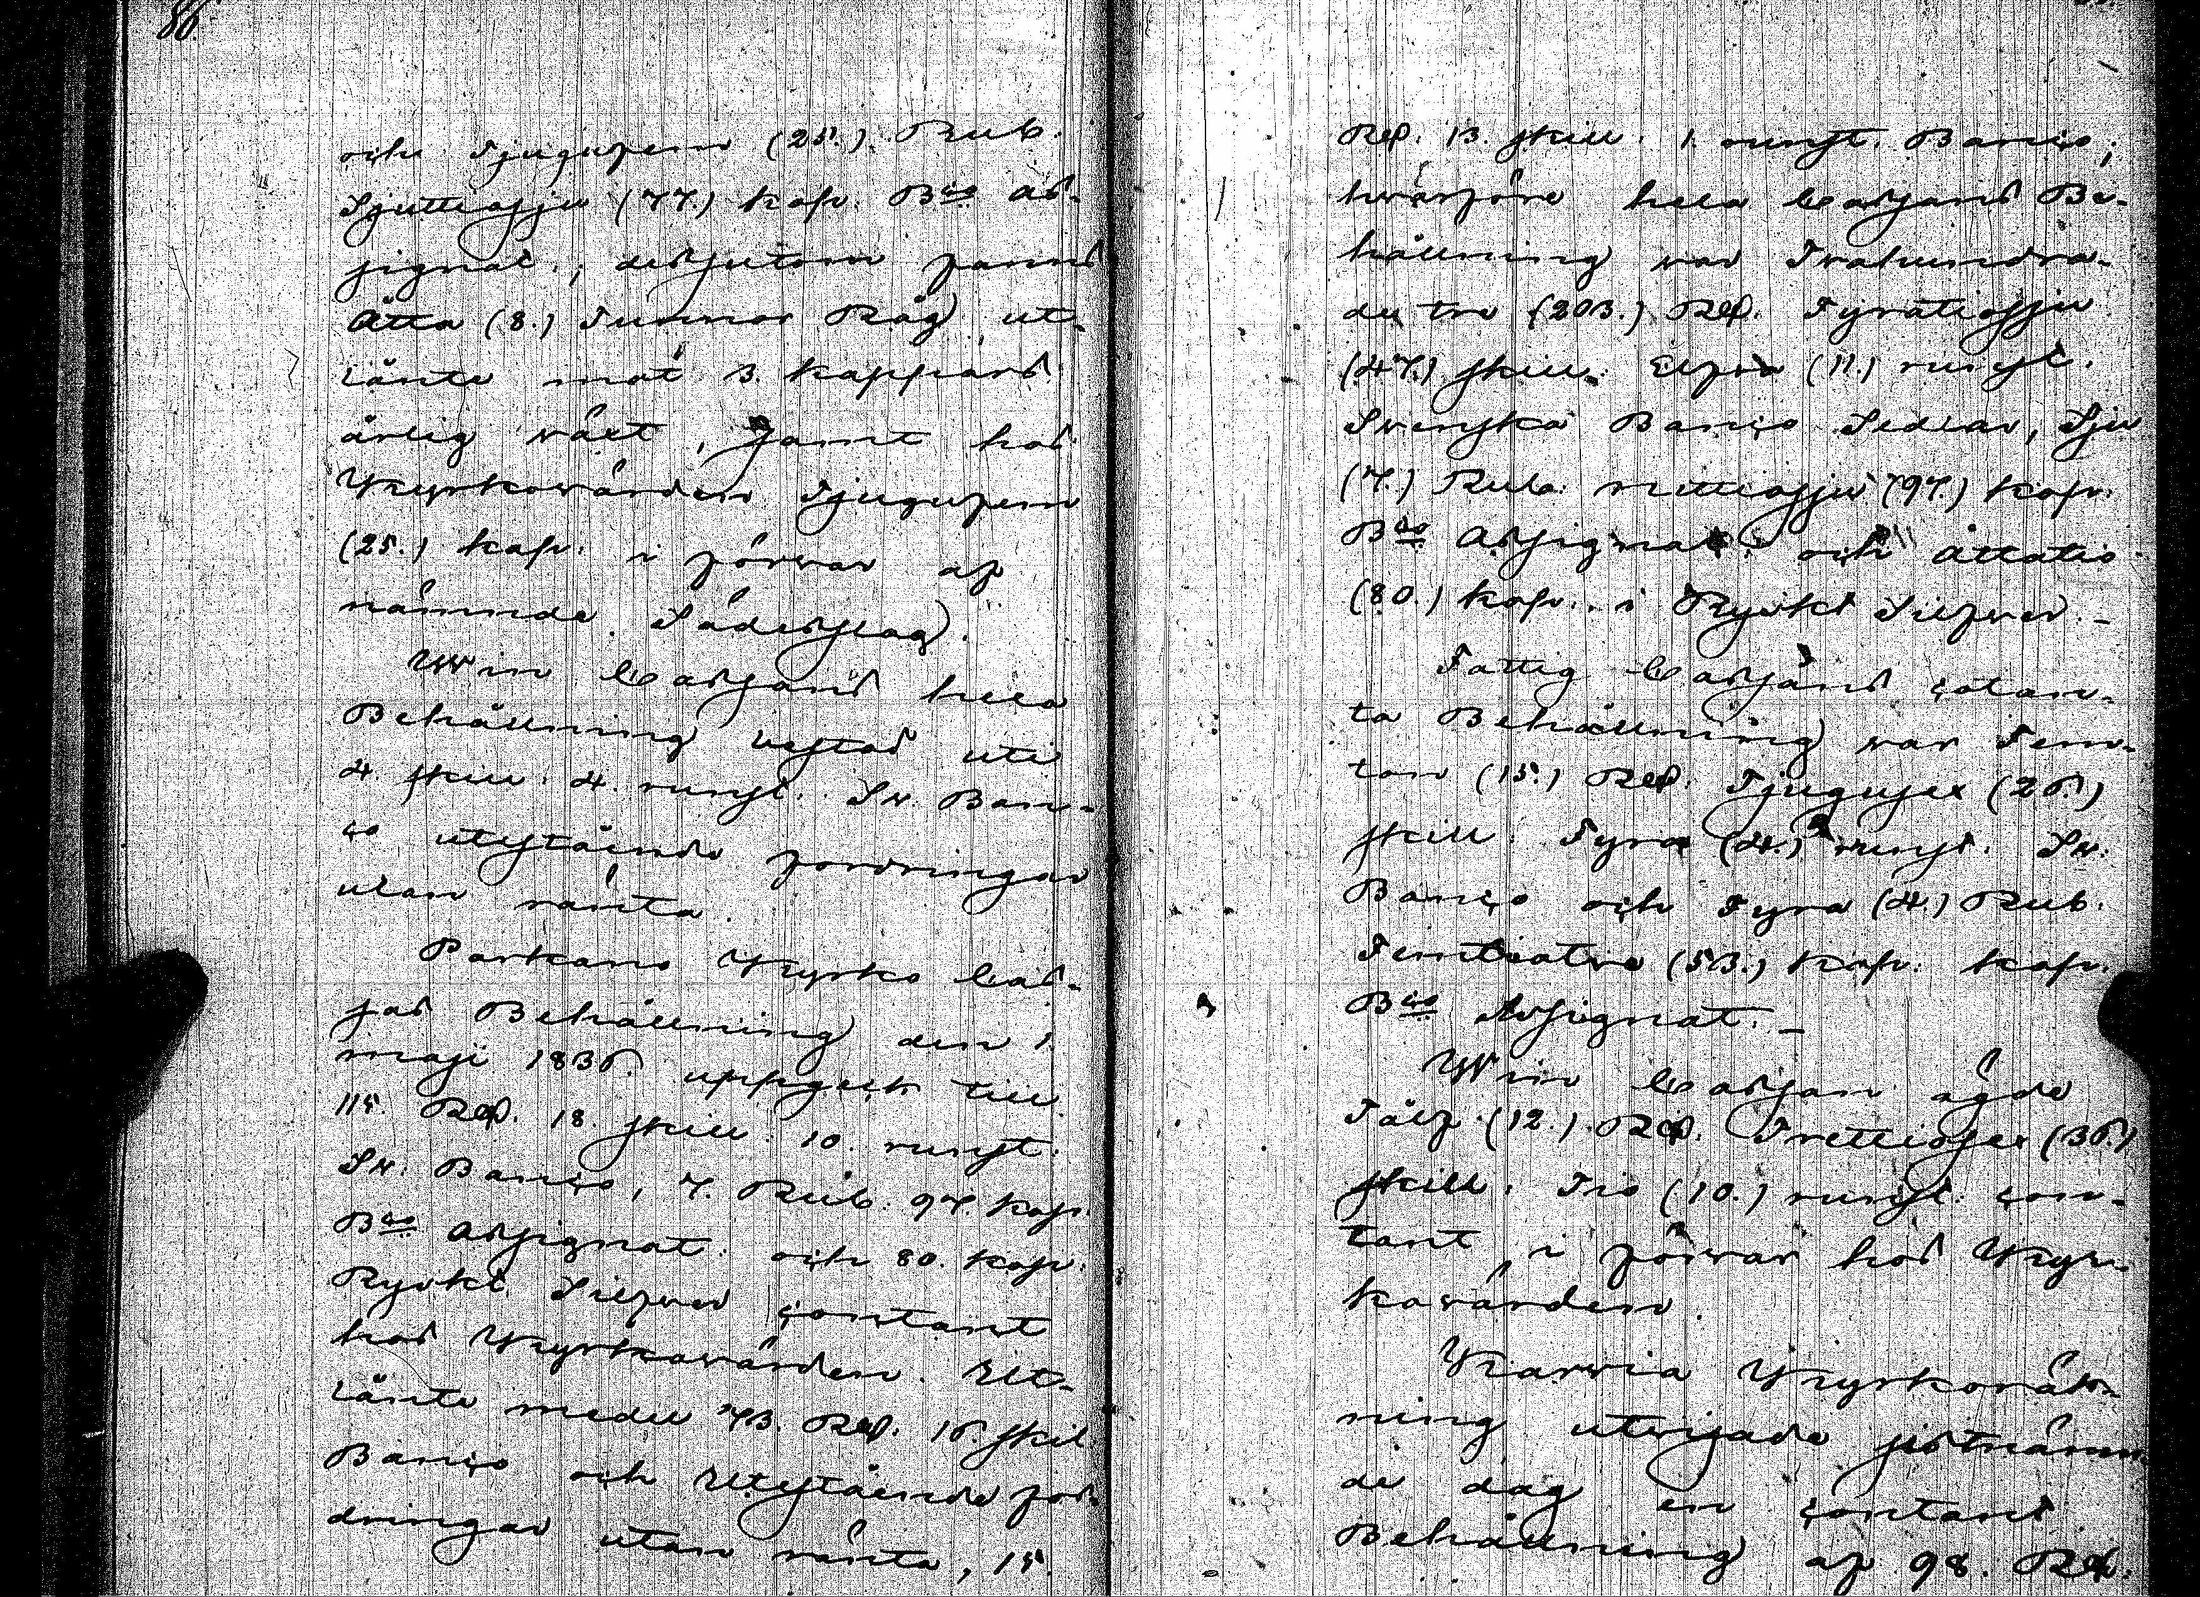 86.
och Tjugufem (25.) Rub.
Sjuttiosju (77.) kop. Bco As-
signat., dessutom fanns
Åtta (8.) Tunnor Råg, ut-
lånte mot 3. kappars
årlig växt, samt hos
Kyrkowärden Tjugufem
(25.) kop. i förvar af
nämnde Sädesslag.
Win Cassans hela
Behållning bestod uti
4 skill. 4. runst. Sv. Ban-
co utestående fordringar
utan ränta.
Parkano Kyrko Cas-
sas Behållning den 1.
maji 1836. uppgick till
115. Rd. 18. skill. 10. runst.
Sv. Banco, 7. Rub. 97. kop.
Bco Assignat. och 80. kop.
Ryskt Silfver contant
hos Kyrkowärden. Ut-
lånte medel 73. Rd. 16. skil
Banco och Utestående for-
dringar utan ränta, 15.
Rd. 13. skill. 1. runst. Banco;
hvarföre hela Cassans Be-
hållning var Tvåhundra-
de tre (203.) Rd. Fyratiosju
(47.) skill. Elfva (11.) runst.
Svenska Banco Sedlar, Sju
(7.) Rub. nittiosju (97.) kop.
Bco Assignat. och Åttatio
(80.) kop. i Ryskt Silfver. -
Fattig Cassans contan-
ta Behållning var Fem-
ton (15.) Rd. Tjugusex (26.)
skill. Fyra (4.) runst. Sv.
Banco och Fyra (4.) Rub.
Femtiotre (53.) kop. kop.
Bco Assignat. -
Win Cassan ägde
Tolf (12.) Rd. Trettiosex (36.)
skill. Tio (10.) runst. con-
tant i förvar hos Kyr-
kowärden.
Karvia Kyrkoräk-
ning utvisade sistnämn-
de dag en contant
Behållning af 98. Rd.